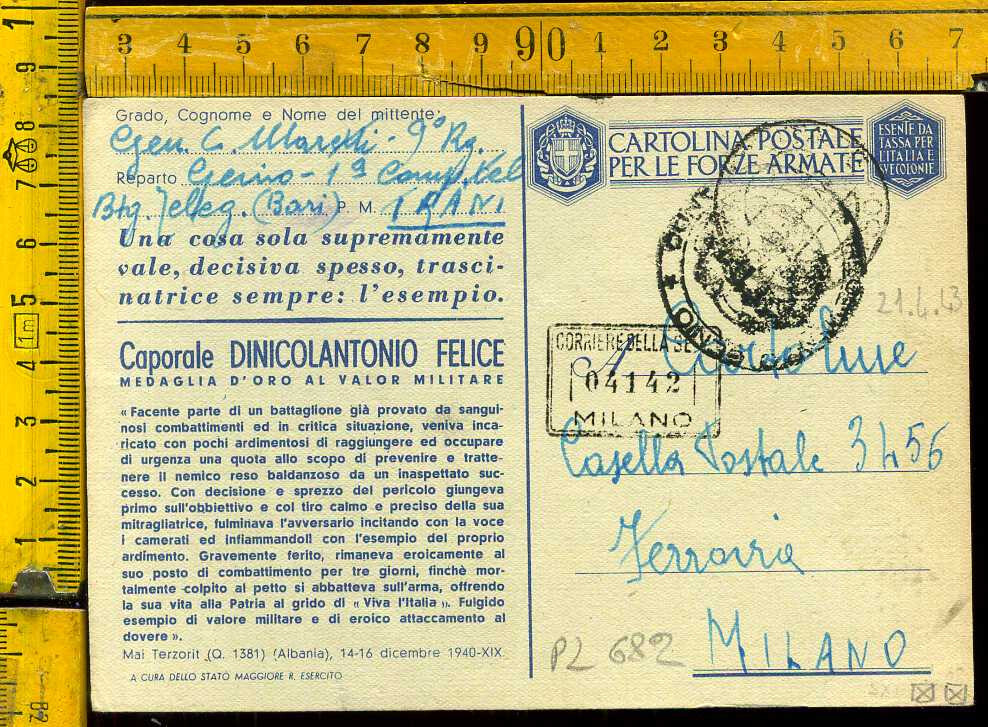 Grado, Cognome e Nome del mittente:
Reparto Genio - 1ª Comp.
Btg. Teleg. (Bari) P. M. TRANI
Una cosa sola supremamente
vale, decisiva spesso, trasci-
natrice sempre: l'esempio.
Caporale DINICOLANTONIO FELICE
MEDAGLIA D'ORO AL VALOR MILITARE
« Facente parte di un battaglione già provato da sangui-
nosi combattimenti ed in critica situazione, veniva inca-
ricato con pochi ardimentosi di raggiungere ed occupare
di urgenza una quota allo scopo di prevenire e tratte-
nere il nemico reso baldanzoso da un inaspettato suc-
cesso. Con decisione e sprezzo del pericolo giungeva
primo sull'obbiettivo e col tiro calmo e preciso della sua
mitragliatrice, fulminava l'avversario incitando con la voce
i camerati ed infiammandoli con l'esempio del proprio
ardimento. Gravemente ferito, rimaneva eroicamente al
suo posto di combattimento per tre giorni, finchè mor-
talmente colpito al petto si abbatteva sull'arma, offrendo
la sua vita alla Patria al grido di « Viva l'Italia ». Fulgido
esempio di valore militare e di eroico attaccamento al
dovere ».
Mai Terzorit (Q. 1381) (Albania), 14-16 dicembre 1940-XIX.
A CURA DELLO STATO MAGGIORE R. ESERCITO
CARTOLINA POSTALE
PER LE FORZE ARMATE
ESENTE DA
TASSA PER
L'ITALIA E
LE COLONIE
21.4.43
CORRIERE DELLA SE
04142
MILANO
Casella Postale 3456
Ferrovia
MILANO
PL 682
3 4 5 6 7 8 9 90 1 2 3 4 5 6 7
1 9 8 7 6 5 1m 4 3 2 1